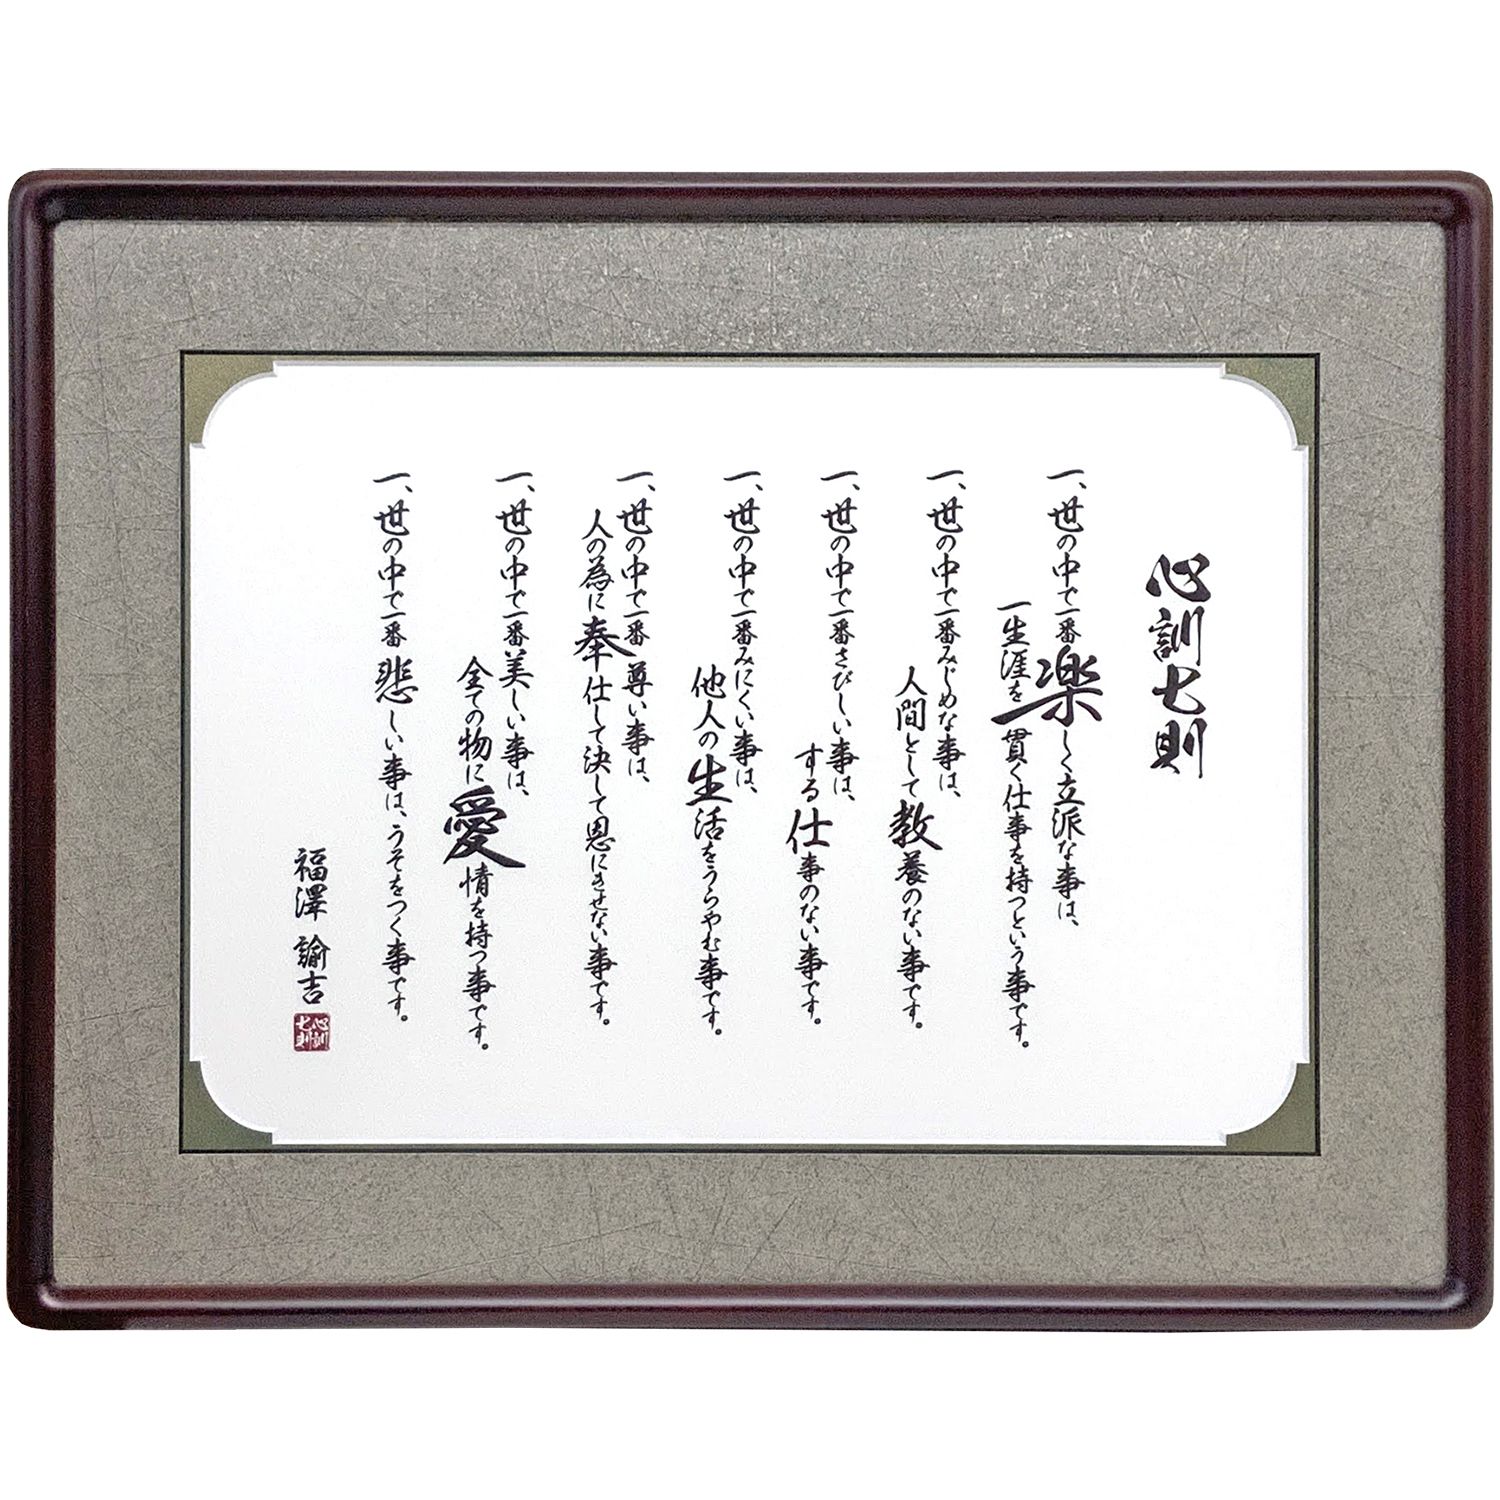 心訓七則
一、世の中で一番楽しく立派な事は、
一生涯を貫く仕事を持つという事です。
一、世の中で一番みじめな事は、
人間として教養のない事です。
一、世の中で一番さびしい事は、
する仕事のない事です。
一、世の中で一番みにくい事は、
他人の生活をうらやむ事です。
一、世の中で一番尊い事は、
人の為に奉仕して決して恩にきせない事です。
一、世の中で一番美しい事は、
全ての物に愛情を持つ事です。
一、世の中で一番悲しい事は、うそをつく事です。
福澤諭吉
心訓
七則